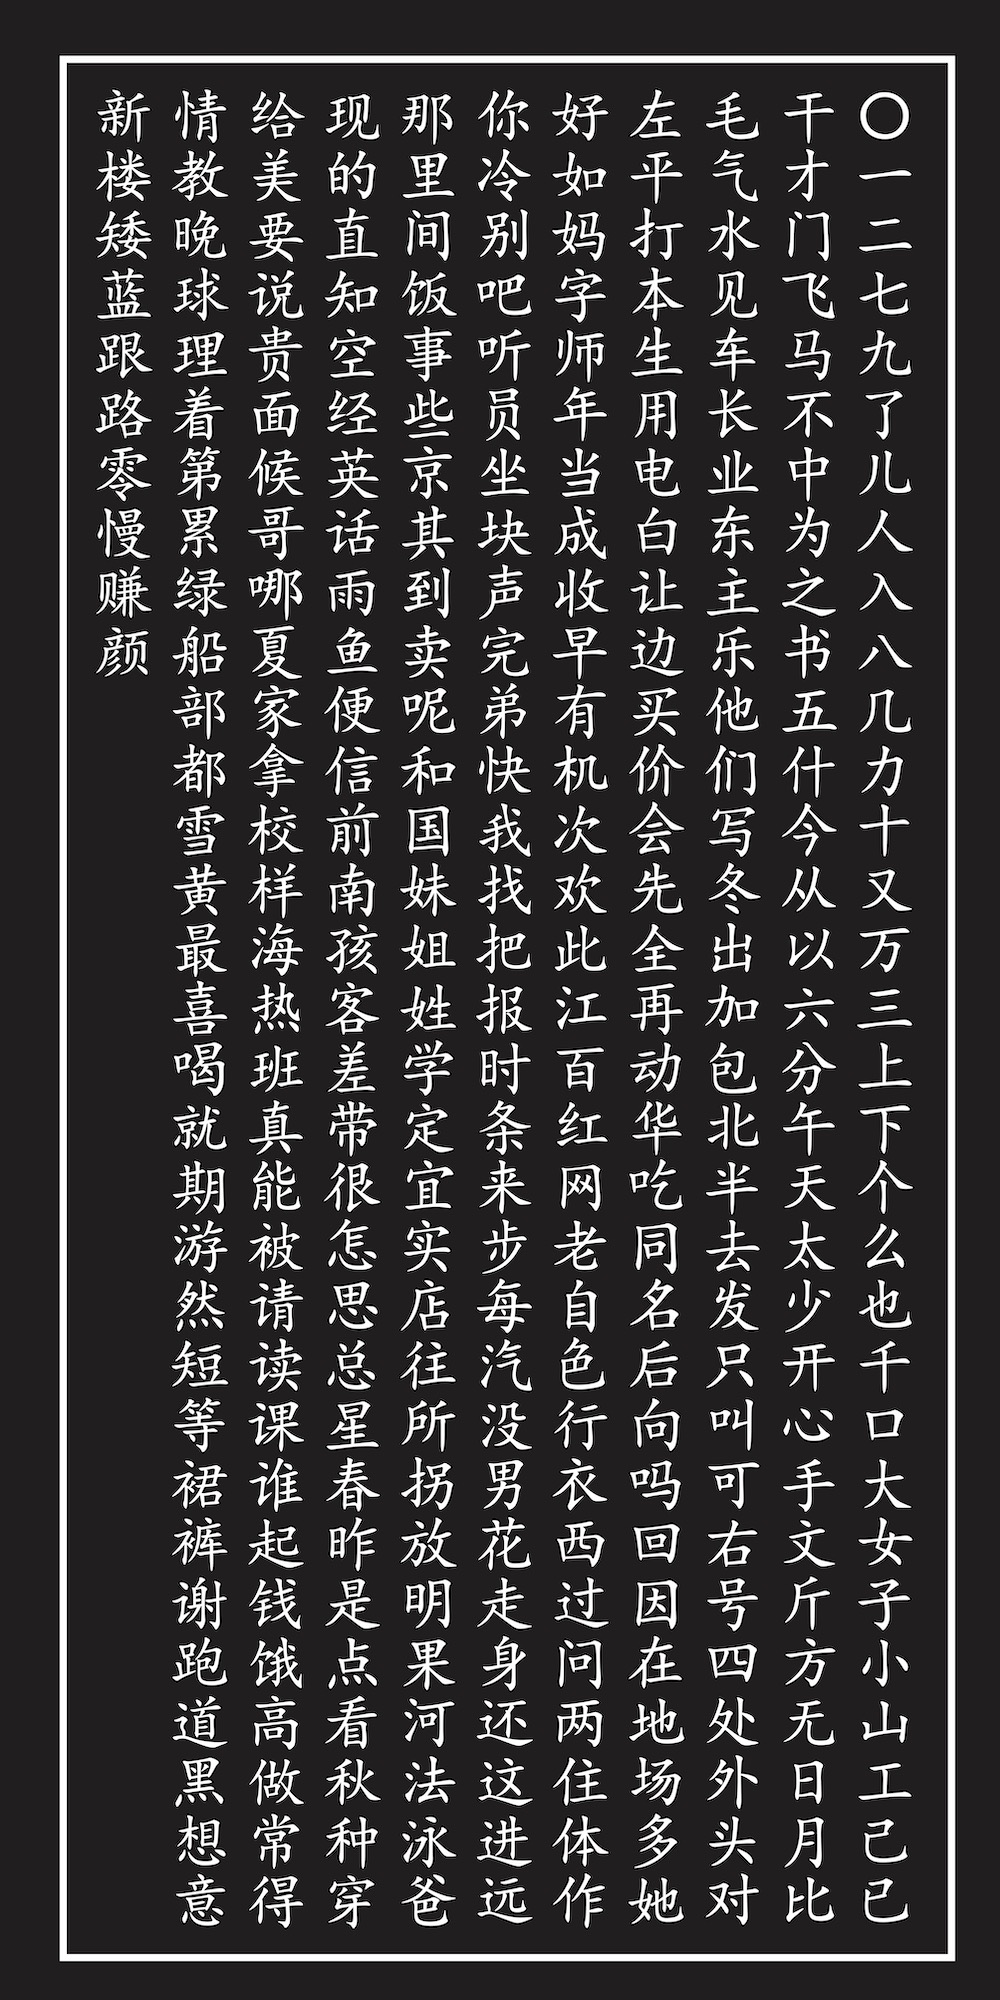 〇一二七九了儿人入八几力十又万三上下个么也千口大女子小山工己已
干才门飞马不中为之书五什今从以六分午天太少开心手文斤方无日月比
毛气水见车长业东主乐他们写冬出加包北半去发只叫可右号四处外头对
左平打本生用电白让边买价会先全再动华吃同名后向吗回因在地场多她
好如妈字师年当成收早有机次欢此江百红网老自色行衣西过问两住体作
你冷别吧听员坐块声完弟快我找把报时条来步每汽没男花走身还这进远
那里间饭事些京其到卖呢和国妹姐姓学定宜实店往所拐放明果河法泳爸
现的直知空经英话雨鱼便信前南孩客差带很怎思总星春昨是点看秋种穿
给美要说贵面候哥哪夏家拿校样海热班真能被请读课谁起钱饿高做常得
情教晚球理着第累绿船部都雪黄最喜喝就期游然短等裙裤谢跑道黑想意
新楼矮蓝跟路零慢赚颜